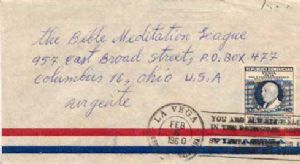 The Bible Meditation League
957 East Broad Street, P.O. Box 477
Columbus 16, Ohio U.S.A
Urgente
REPUBLICA DOMINICANA
LA VEGA
FEB
1960